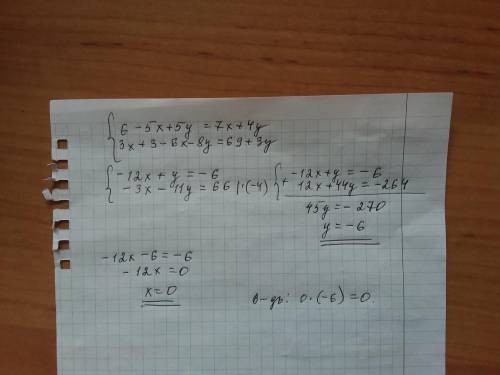 6 - 5x + 5y = 7x + 4y
3x + 3 - 6x - 8y = 69 + 3y
-12x + y = -6
-3x - 11y = 66 | · (-4)
+ -12x + y = -6
12x + 44y = -264
45y = -270
y = -6
-12x - 6 = -6
-12x = 0
x = 0
в-дь: 0 · (-6) = 0